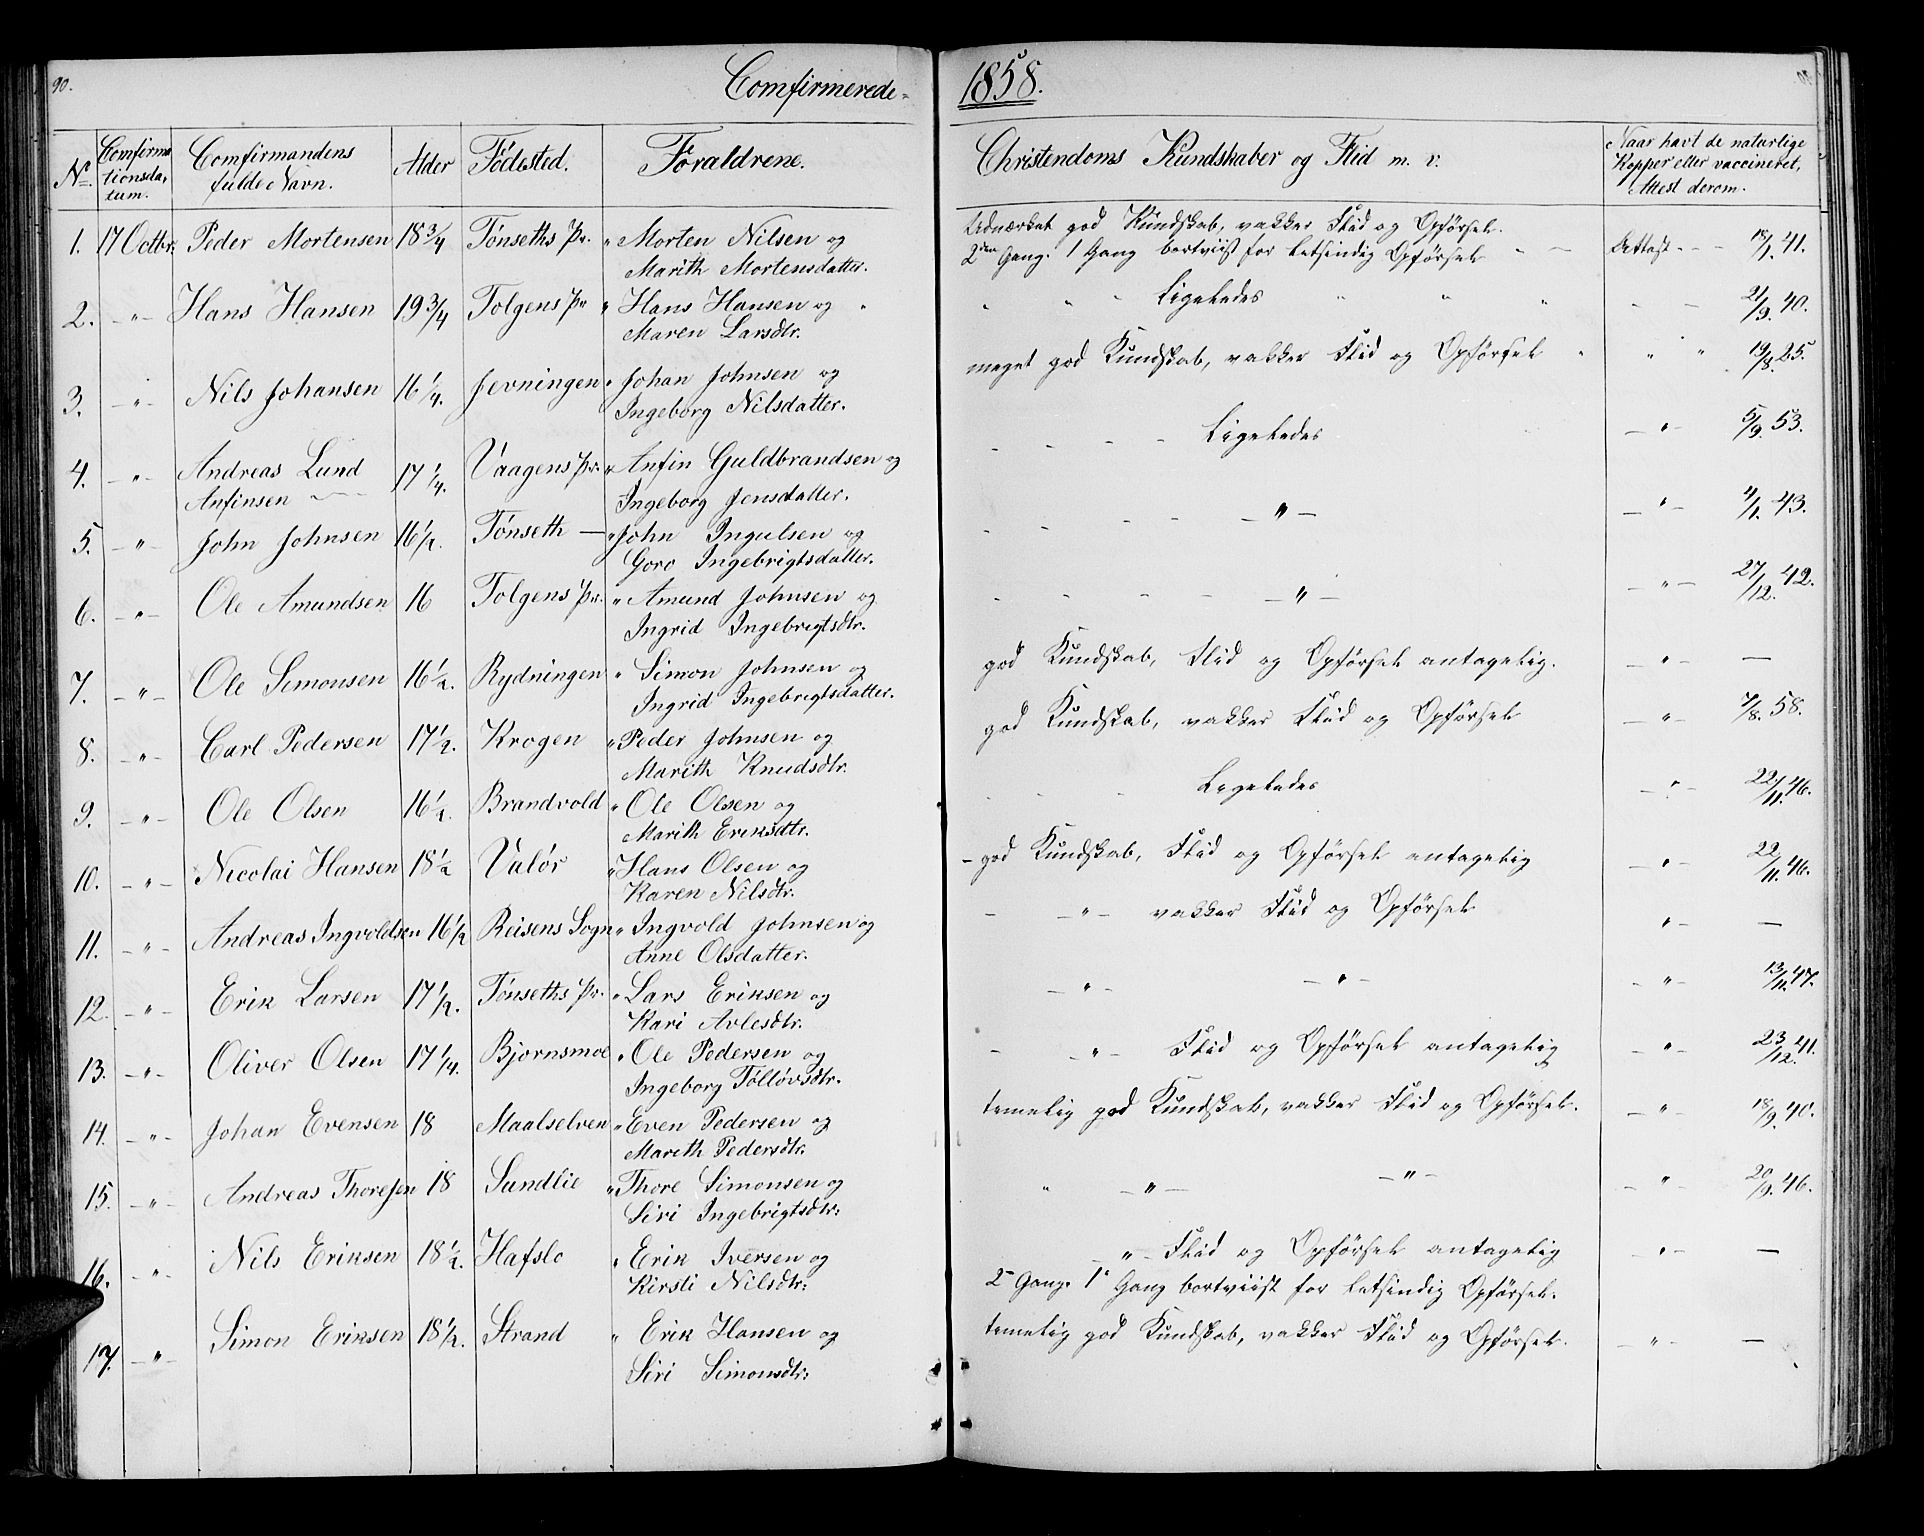 90.
Comfirmerede-
1858.
No. Comfirmationsdatum. Comfirmandens fulde Navn. Alder Födested. Foraldrene. Christendoms Kundskaber og Flid m. v. Naar havt de naturlige Kopper eller vaccineret, Attest derom.
1. 17 Octbr. Peder Mortensen 18 3/4 Tönseths Pr. " Morten Nilsen og Udmærket god Kundskab, vakker Flid og Opförsel.
Marith Mortensdatter. 2den Gang. 1 Gang bortviist for letsindig Opförsel " — Attest - - - 18/1. 41.
2. -"- Hans Hansen 19 3/4 Tolgens Pr " Hans Hansen og " " " Ligeledes " " " - - 21/9. 40.
Maren Larsdtr.
3. -"- Nils Johansen 16 1/4. Jevningen " Johan Johnsen og meget god Kundskab, vakker Flid og Opförsel " " " 19/8. 25.
Ingeborg Nilsdatter.
4. -"- Andreas Lund 17 1/4. Vaagens Pr. " Anfin Guldbrandsen og - - - - Ligeledes -"- 5/9. 53.
Anfinsen Ingeborg Jensdatter.
5. -"- John Johnsen 16 1/2. Tönseth — " John Ingulsen og - - - - -"- -"- 4/1. 43.
Goro Ingebrigtsdatter.
6. -"- Ole Amundsen 16 Tolgens Pr. " Amund Johnsen og - - - - -"- -"- 27/12. 42.
Ingrid Ingebregtsdtr.
7. -"- Ole Simonsen 16 1/2. Rydningen " Simon Johnsen og god Kundskab, Flid og Opförsel antagelig. -"- —
Ingrid Ingebregtsdatter.
8. -"- Carl Pedersen 17 1/2. Krogen " Peder Johnsen og god Kundskab, vakker Flid og Opförsel -"- 7/8. 58.
Marith Knudsdtr.
9. -"- Ole Olsen 16 1/2. Brandvold " Ole Olsen og - - - Ligeledes -"- 22/11. 46.
Marith Eriksdtr.
10. -"- Nicolai Hansen 18 1/2 Valör " Hans Olsen og - god Kundskab, Flid og Opförsel antagelig -"- 22/11. 46.
Karen Nilsdtr.
11. -"- Andreas Ingvoldsen 16 1/2 Reisens Sogn " Ingvold Johnsen og - -"- vakker Flid og Opförsel "- —
Anne Olsdatter.
12. -"- Erik Larsen 17 1/2. Tönseths Pr. " Lars Eriksen og -"- -"- -"- 13/11. 47.
Kari Avlesdtr.
13. -"- Oliver Olsen 17 1/4. Bjornsmoe " Ole Pedersen og - -"- Flid og Opförsel antagelig -"- 23/12. 41.
Ingeborg Töllövsdtr.
14. -"- Johan Evensen 18 Maalselven " Even Pedersen og temelig god Kundskab, vakker Flid og Opförsel. -"- 18/9. 40.
Mareth Pedersdtr.
15. -"- Andreas Thoresen 18 Sundlie " Thore Simonsen og " -"- -"- -"- 20/9. 46.
Siri Ingebrigtsdtr:
16. -"- Nils Eriksen 18 1/2. Hafslo " Erik Iversen og -"- Flid og Opförsel antagelig -"- —
Kirsti Nilsdtr: 2 Gang. 1 Gang bortviist for letsindig Opförsel.
17. -"- Simon Eriksen 18 1/2. Strand " Erik Hansen og temelig god Kundskab, vakker Flid og Opförsel. -"- —
Siri Simonsdtr: